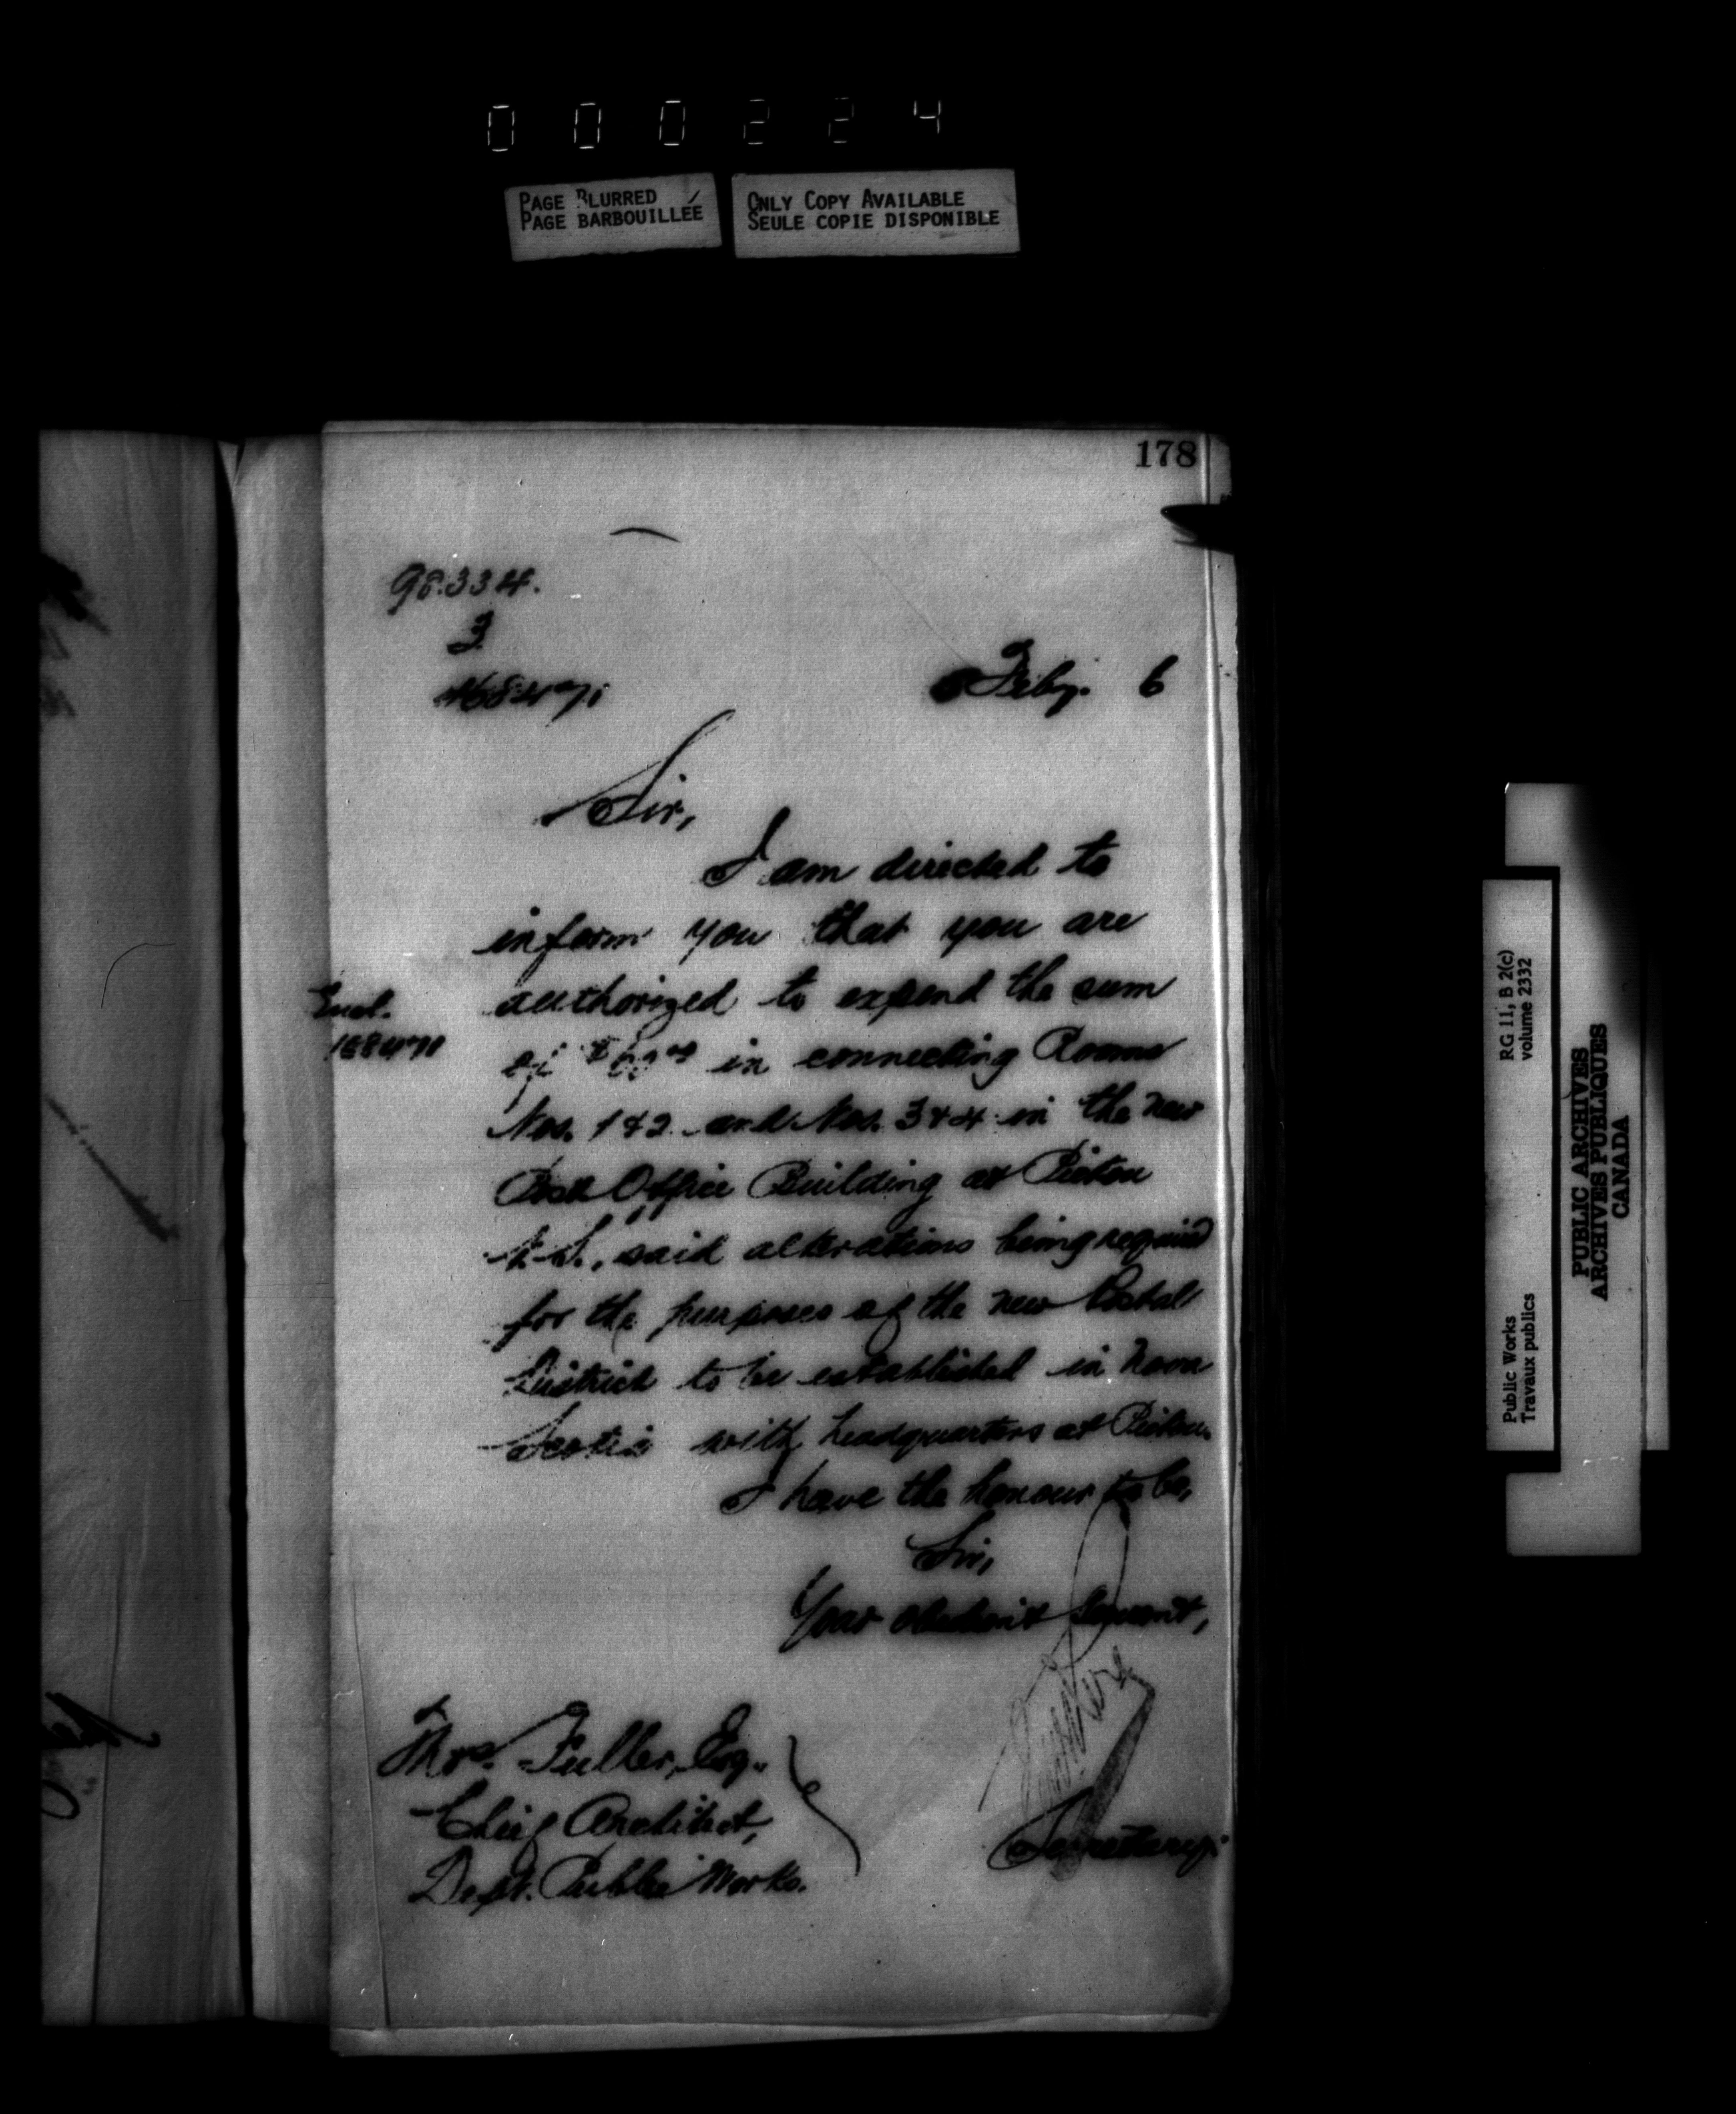 000224
PAGE BLURRED
PAGE BARBOUILLÉE
ONLY COPY AVAILABLE
SEULE COPIE DISPONIBLE
178
98.334.
3
Feby. 6
Sir,
I am directed to
inform you that you are
authorized to expend the sum
Encl.
of in connecting Rooms
Nos. 1 & 2 and Nos. 3 & 4 in the new
Post Office Building at Pictou
N.S., said alterations being required
for the purposes of the new Postal
District to be established in Nova
Scotia with headquarters at Pictou.
I have the honour to be,
Sir,
Your obedient Servant,
Thos. Fuller, Esq.
Chief Architect,
Dept. Public Works.
Secretary.
RG 11, B 2(c)
volume 2332
Public Works
Travaux publics
PUBLIC ARCHIVES
ARCHIVES PUBLIQUES
CANADA